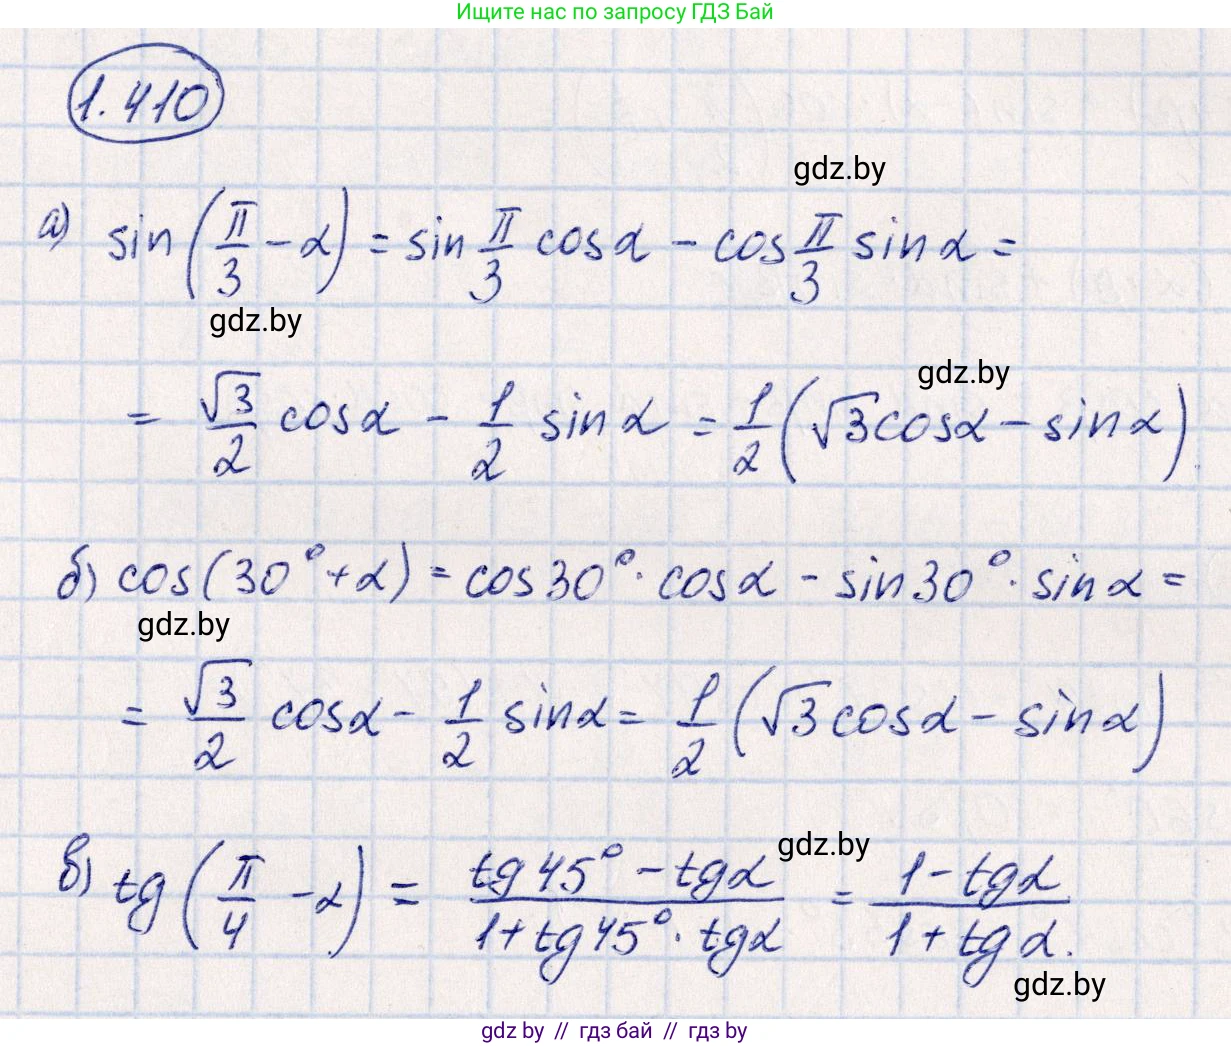 Ищите нас по запросу ГДЗ Бай
1.410
gdz.by
а) sin(π/3 - α) = sin π/3 cosα - cos π/3 sinα =
gdz.by
gdz.by
= √3/2 cosα - 1/2 sinα = 1/2 (√3cosα - sinα).
б) cos(30° + α) = cos30° · cosα - sin30° · sinα =
gdz.by
= √3/2 cosα - 1/2 sinα = 1/2 (√3cosα - sinα)
gdz.by
в) tg(π/4 - α) = (tg45° - tgα)/(1 + tg45° · tgα) = (1 - tgα)/(1 + tgα).
gdz.by
gdz by // гдз бай // гдз by